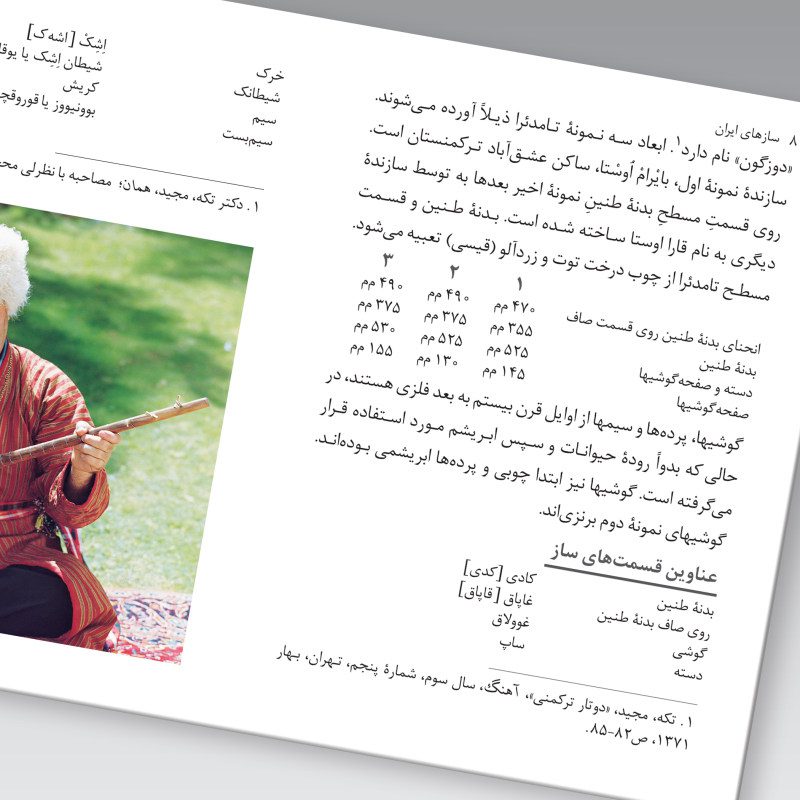 ۸ سازهای ایران
«دوزگون» نام دارد۱. ابعاد سه نمونهٔ تامدئرا ذیلاً آورده می‌شوند.
سازندهٔ نمونهٔ اول، بایْرامْ اُوسْتا، ساکن عشق‌آباد ترکمنستان است.
روی قسمتِ مسطحِ بدنهٔ طنینِ نمونهٔ اخیر بعدها به توسط سازندهٔ
دیگری به نام قارا اوستا ساخته شده است. بدنهٔ طنین و قسمت
مسطح تامدئرا از چوب درخت توت و زردآلو (قیسی) تعبیه می‌شود.
۱ ۲ ۳
انحنای بدنهٔ طنین روی قسمت صاف ۴۷۰ مم ۴۹۰ مم ۴۹۰ مم
بدنهٔ طنین ۳۵۵ مم ۳۷۵ مم ۳۷۵ مم
دسته و صفحه‌گوشیها ۵۲۵ مم ۵۲۵ مم ۵۳۰ مم
صفحه‌گوشیها ۱۴۵ مم ۱۳۰ مم ۱۵۵ مم
گوشیها، پرده‌ها و سیمها از اوایل قرن بیستم به بعد فلزی هستند، در
حالی که بدواً رودهٔ حیوانات و سپس ابریشم مورد استفاده قرار
می‌گرفته است. گوشیها نیز ابتدا چوبی و پرده‌ها ابریشمی بوده‌اند.
گوشیهای نمونهٔ دوم برنزی‌اند.
عناوین قسمت‌های ساز
بدنهٔ طنین کادی [کدی]
روی صاف بدنهٔ طنین غاپاق [قاپاق]
گوشی غوولاق
دسته ساپ
۱. تکه، مجید، «دوتار ترکمنی»، آهنگ، سال سوم، شمارهٔ پنجم، تهران، بهار
۱۳۷۱، ص۸۲-۸۵.
خرک اِشِکْ [اشه‌ک]
شیطانک شیطان اِشِک یا
سیم کریش
سیم‌بست بوونیووز یا
۱. دکتر تکه، مجید، همان؛ مصاحبه با نظرلی